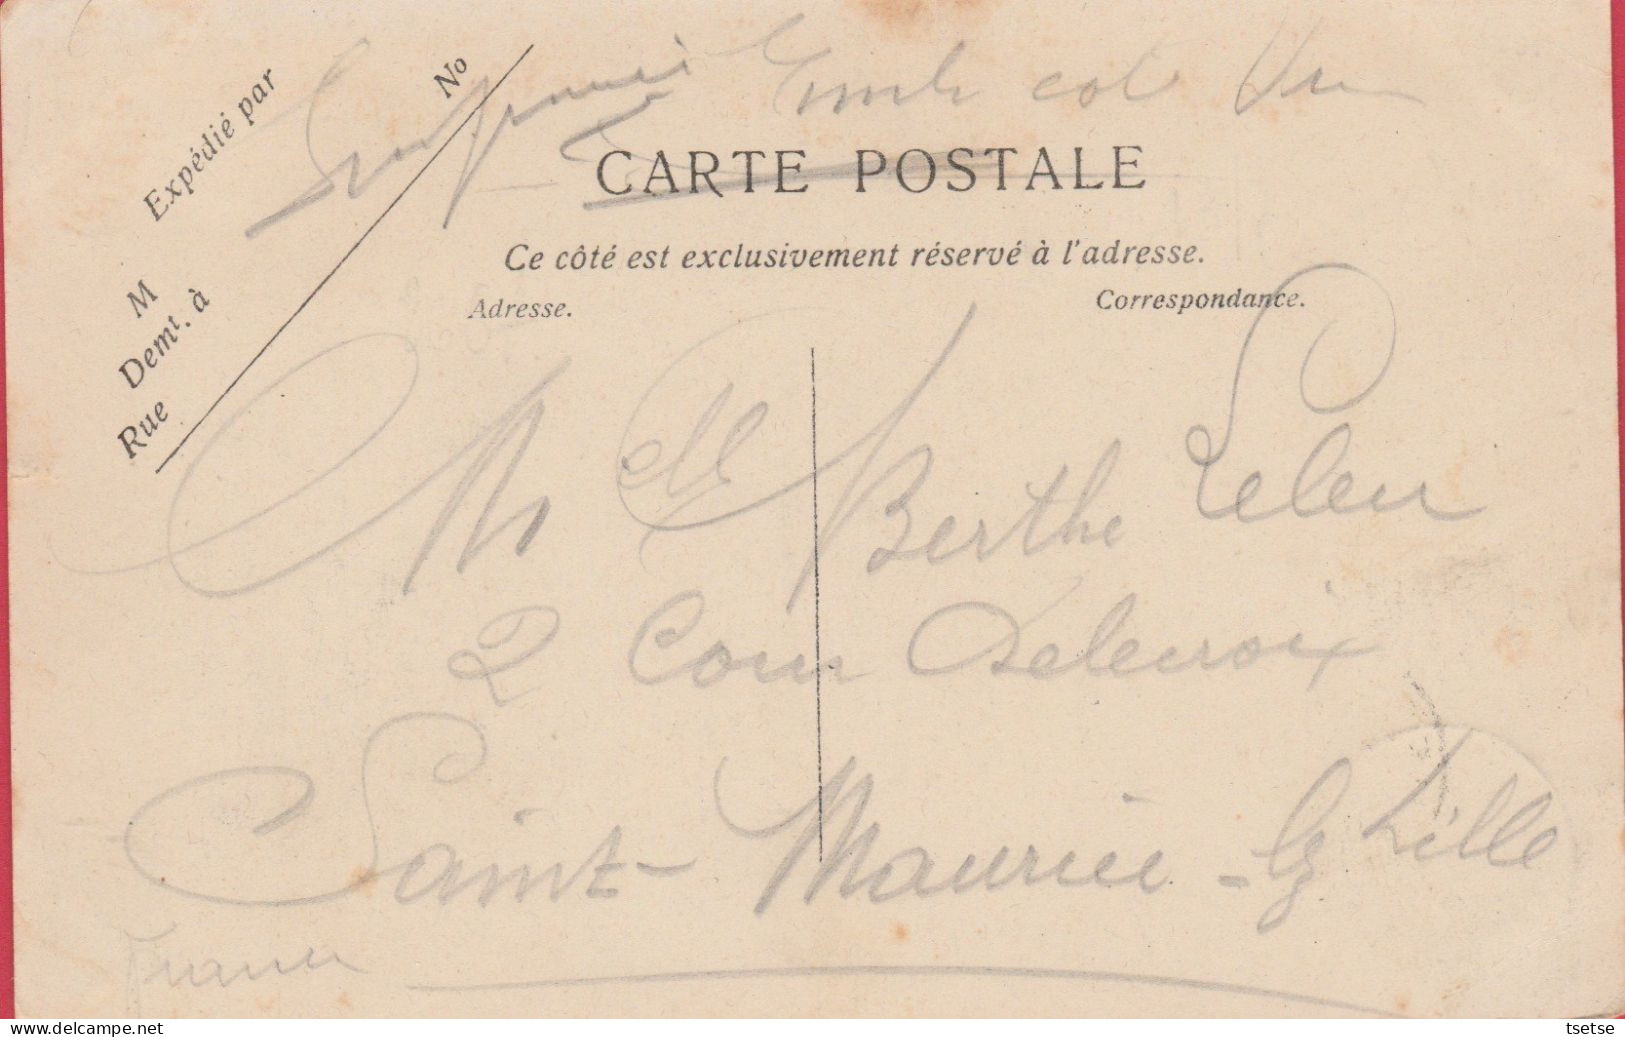 Expédié par
No
M
Demt. à
Rue
CARTE POSTALE
Ce côté est exclusivement réservé à l'adresse.
Adresse.
Correspondance.
Melle Berthe Leleu
2 Cour Delecroix
Saint-Maurice-lz Lille
France
tsetse